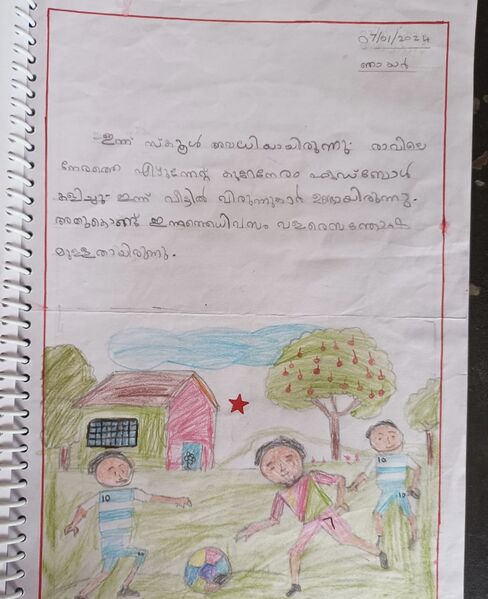 07/01/2024
ഞായർ
ഇന്ന് സ്കൂൾ അവധിയായിരുന്നു. രാവിലെ
നേരത്തെ എഴുന്നേറ്റ് കുറേനേരം ഫുട്ബോൾ
കളിച്ചു. ഇന്ന് വീട്ടിൽ വിരുന്നുകാർ ഉണ്ടായിരുന്നു.
അതുകൊണ്ട് ഇന്നത്തെധിവസം വളരെസന്തോഷ
മുള്ളതായിരുന്നു.
10
7
10